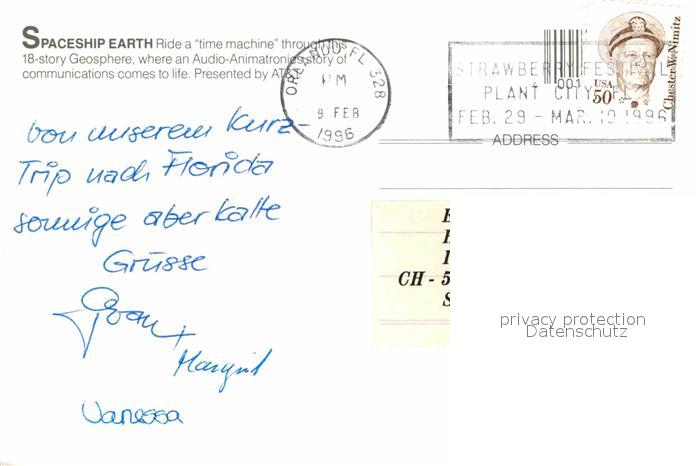 SPACESHIP EARTH Ride a "time machine" through this
18-story Geosphere, where an Audio-Animatronics story of
communications comes to life. Presented by AT&T.
ORLANDO, FL 328
PM
9 FEB
1996
001
USA
50
Chester W. Nimitz
STRAWBERRY FESTIVAL
PLANT CITY, FL
FEB. 29 - MAR. 10 1996
ADDRESS
von unserem Kurz-
Trip nach Florida
sonnige aber kalte
Grüsse
Margrit
Vanessa
CH - 5
privacy protection
Datenschutz